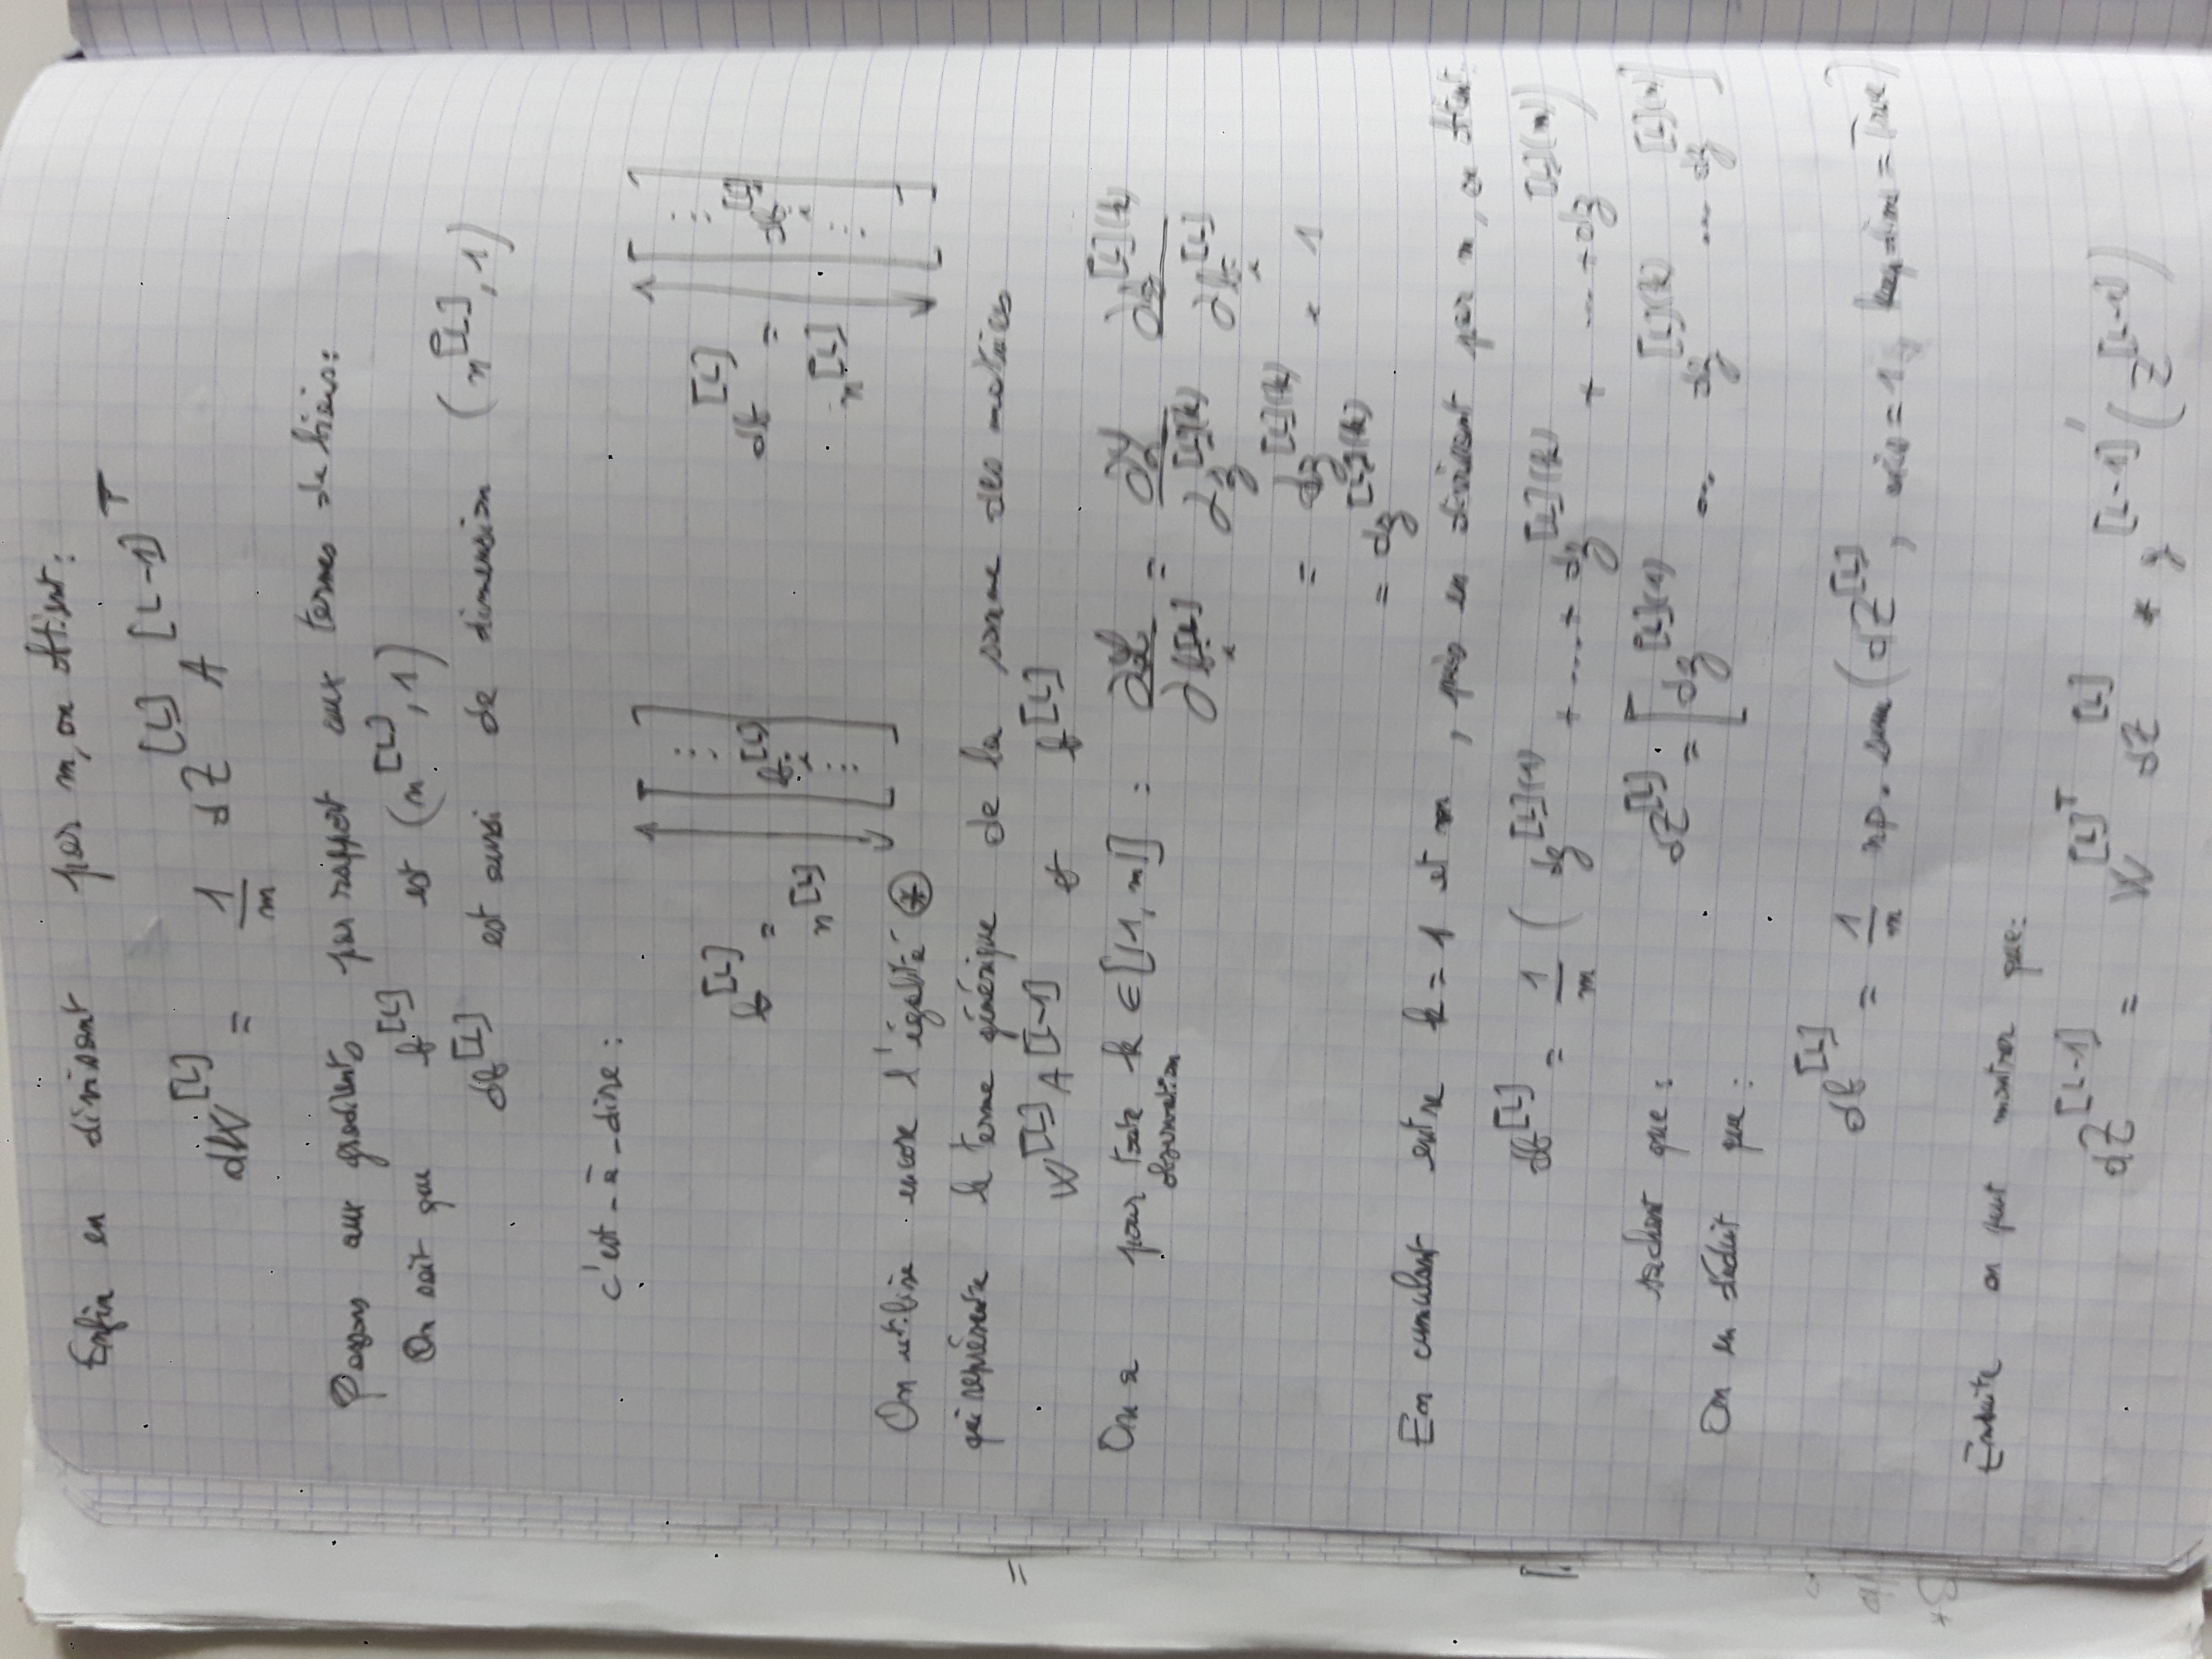 Enfin en divisant par m, on obtient:
dW^[L] = 1/m dZ^[L] A^[L-1]T
Passons aux gradients par rapport aux termes de biais:
On sait que b^[L] est (n^[L], 1)
db^[L] est aussi de dimension (n^[L], 1)
c'est-à-dire:
b^[L] = n^[L] [ ⋮ b_i^[L] ⋮ ] db^[L] = n^[L] [ ⋮ db_i^[L] ⋮ ]
On utilise encore l'égalité ⊛
qui représente le terme générique de la somme des matrices
W^[L] A^[L-1] et b^[L]
On a pour toute observation k ∈ [[1, m]] : ∂L/∂b_i^[L] = ∂L/∂z^[L](k) ∂z^[L](k)/∂b_i^[L]
= dz^[L](k) × 1
= dz^[L](k)
En cumulant entre k=1 et m, puis en divisant par m, on obtient:
db^[L] = 1/m ( dz^[L](1) + .... + dz^[L](k) + ... + dz^[L](m) )
sachant que: dZ^[L] = [ dz^[L](1) ... dz^[L](k) ... dz^[L](m) ]
On en déduit que:
db^[L] = 1/m np.sum(dZ^[L], axis=1, keepdims=True)
Ensuite on peut montrer que:
dZ^[L-1] = W^[L]T dZ^[L] * g^[L-1]' (Z^[L-1])